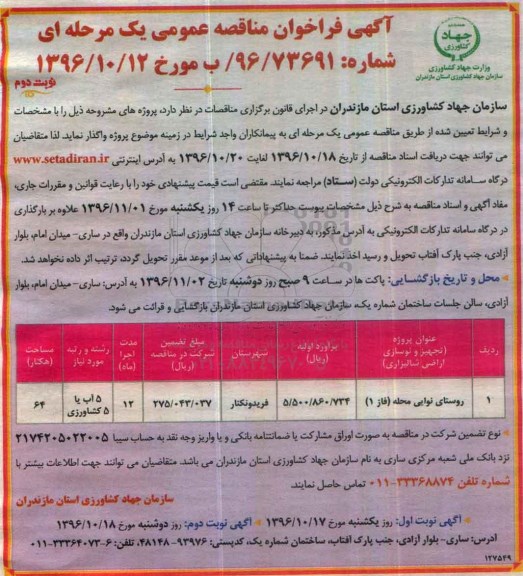 آگهی فراخوان مناقصه عمومی یک مرحله ای
شماره: ۹۶/۷۳۶۹۱/ ب مورخ ۱۳۹۶/۱۰/۱۲
نوبت دوم
جهاد
کشاورزی
وزارت جهاد کشاورزی
سازمان جهاد کشاورزی استان مازندران
سازمان جهاد کشاورزی استان مازندران در اجرای قانون برگزاری مناقصات در نظر دارد، پروژه های مشروحه ذیل را با مشخصات
و شرایط تعیین شده از طریق مناقصه عمومی یک مرحله ای به پیمانکاران واجد شرایط در زمینه موضوع پروژه واگذار نماید. لذا متقاضیان
می توانند جهت دریافت اسناد مناقصه از تاریخ ۱۳۹۶/۱۰/۱۸ لغایت ۱۳۹۶/۱۰/۲۰ به آدرس اینترنتی www.setadiran.ir
درگاه سامانه تدارکات الکترونیکی دولت (ستاد) مراجعه نمایند. مقتضی است قیمت پیشنهادی خود را با رعایت قوانین و مقررات جاری،
مفاد آگهی و اسناد مناقصه به شرح ذیل مشخصات پیوست حداکثر تا ساعت ۱۴ روز یکشنبه مورخ ۱۳۹۶/۱۱/۰۱ علاوه بر بارگذاری
در درگاه سامانه تدارکات الکترونیکی به آدرس مذکور، به دبیرخانه سازمان جهاد کشاورزی استان مازندران واقع در ساری- میدان امام، بلوار
آزادی، جنب پارک آفتاب تحویل و رسید اخذ نمایند. ضمنا به پیشنهاداتی که بعد از موعد مقرر تحویل گردد، ترتیب اثر داده نخواهد شد.
محل و تاریخ بازگشایی: پاکت ها در ساعت ۹ صبح روز دوشنبه تاریخ ۱۳۹۶/۱۱/۰۲ به آدرس: ساری- میدان امام، بلوار
آزادی، سالن جلسات ساختمان شماره یک، سازمان جهاد کشاورزی استان مازندران بازگشایی و قرائت می شود.
ردیف
عنوان پروژه
(تجهیز و نوسازی
اراضی شالیزاری)
برآورد اولیه
(ریال)
شهرستان
مبلغ تضمین
شرکت در مناقصه
(ریال)
مدت
اجرا
(ماه)
رشته و رتبه
مورد نیاز
مساحت
(هکتار)
۱
روستای نوایی محله (فاز ۱)
۵/۵۰۰/۸۶۰/۷۳۴
فریدونکنار
۲۷۵/۰۴۳/۰۳۷
۱۲
۵ آب یا
۵ کشاورزی
۶۴
نوع تضمین شرکت در مناقصه به صورت اوراق مشارکت یا ضمانتنامه بانکی و یا واریز وجه نقد به حساب سیبا ۲۱۷۴۲۰۵۰۲۲۰۰۵
نزد بانک ملی شعبه مرکزی ساری به نام سازمان جهاد کشاورزی استان مازندران می باشد. متقاضیان می توانند جهت اطلاعات بیشتر با
شماره تلفن ۳۳۳۶۸۸۷۴-۰۱۱ تماس حاصل نمایند.
سازمان جهاد کشاورزی استان مازندران
آگهی نوبت اول: روز یکشنبه مورخ ۱۳۹۶/۱۰/۱۷ آگهی نوبت دوم: روز دوشنبه مورخ ۱۳۹۶/۱۰/۱۸
آدرس: ساری- بلوار آزادی، جنب پارک آفتاب، ساختمان شماره یک، کدپستی: ۹۳۹۷۶-۴۸۱۴۸، تلفن: ۶-۳۳۳۶۴۰۷۳-۰۱۱
۱۲۷۵۴۹